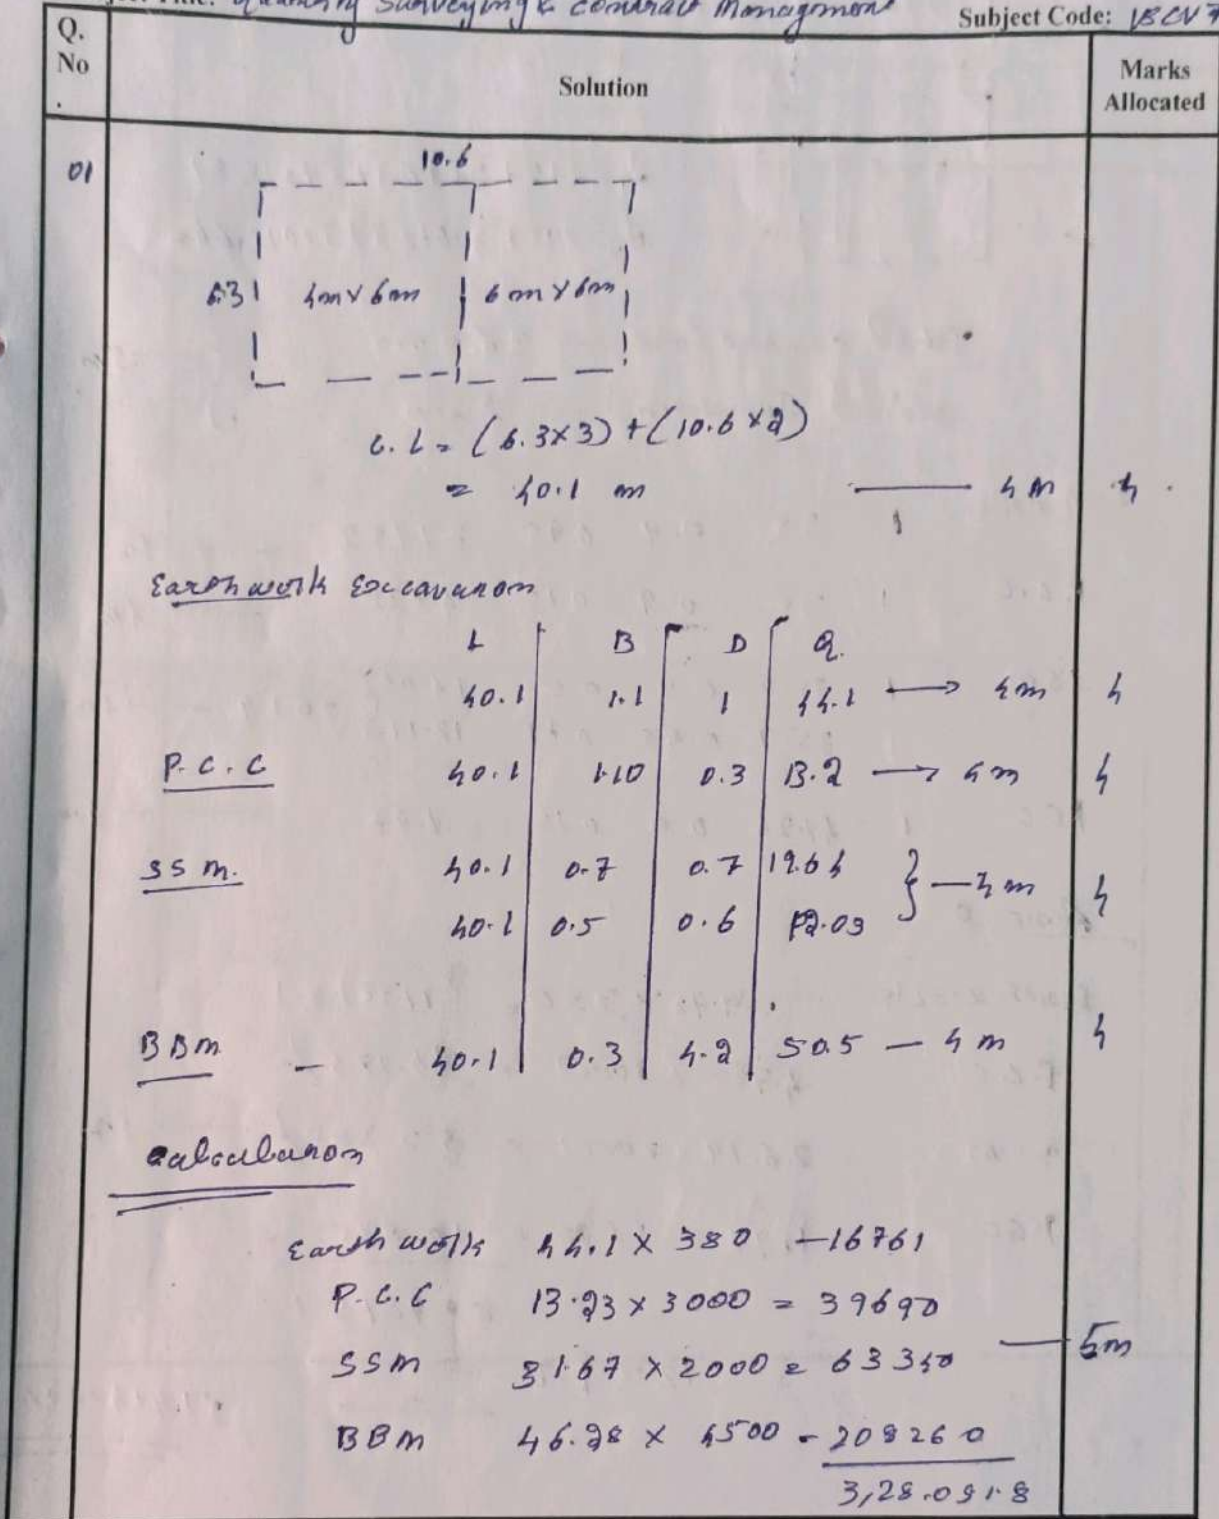 Title: Quantity Surveying & Contract Management Subject Code: 18CV7
Q. No. Solution Marks Allocated
01
10.6
6.3 4m x 6m 6m x 6m
C.L = (6.3x3) + (10.6 x 2)
= 40.1 m — 4 M 4
Earth work Excavation
L B D Q.
40.1 1.1 1 44.1 → 4m 4
P.C.C 40.1 1.10 0.3 13.2 → 4m 4
SSM. 40.1 0.7 0.7 19.64 } — 4m 4
40.1 0.5 0.6 12.03
BBM — 40.1 0.3 4.2 50.5 — 4 m 4
Calculation
Earth work 44.1 x 380 — 16761
P.C.C 13.23 x 3000 = 39690
SSM 31.67 x 2000 = 63340 — 5m
BBM 46.28 x 4500 - 208260
3,28.091.8